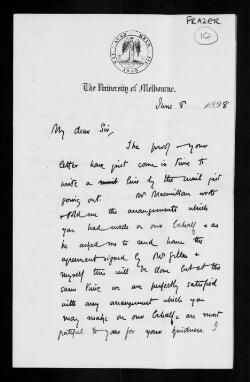 FRAZER
10
The University of Melbourne.
June 8 1898
My dear Sir,
The proof & your
letter have just come in time to
write a line by the mail just
going out. Mr Macmillan wrote
& told me the arrangements which
you had made on our behalf & as
he asked me to send home the
agreement signed by Mr Gillen &
myself this will be done but at the
same time we are perfectly satisfied
with any arrangement which you
may make on our behalf & are most
grateful to you for your kindness. I